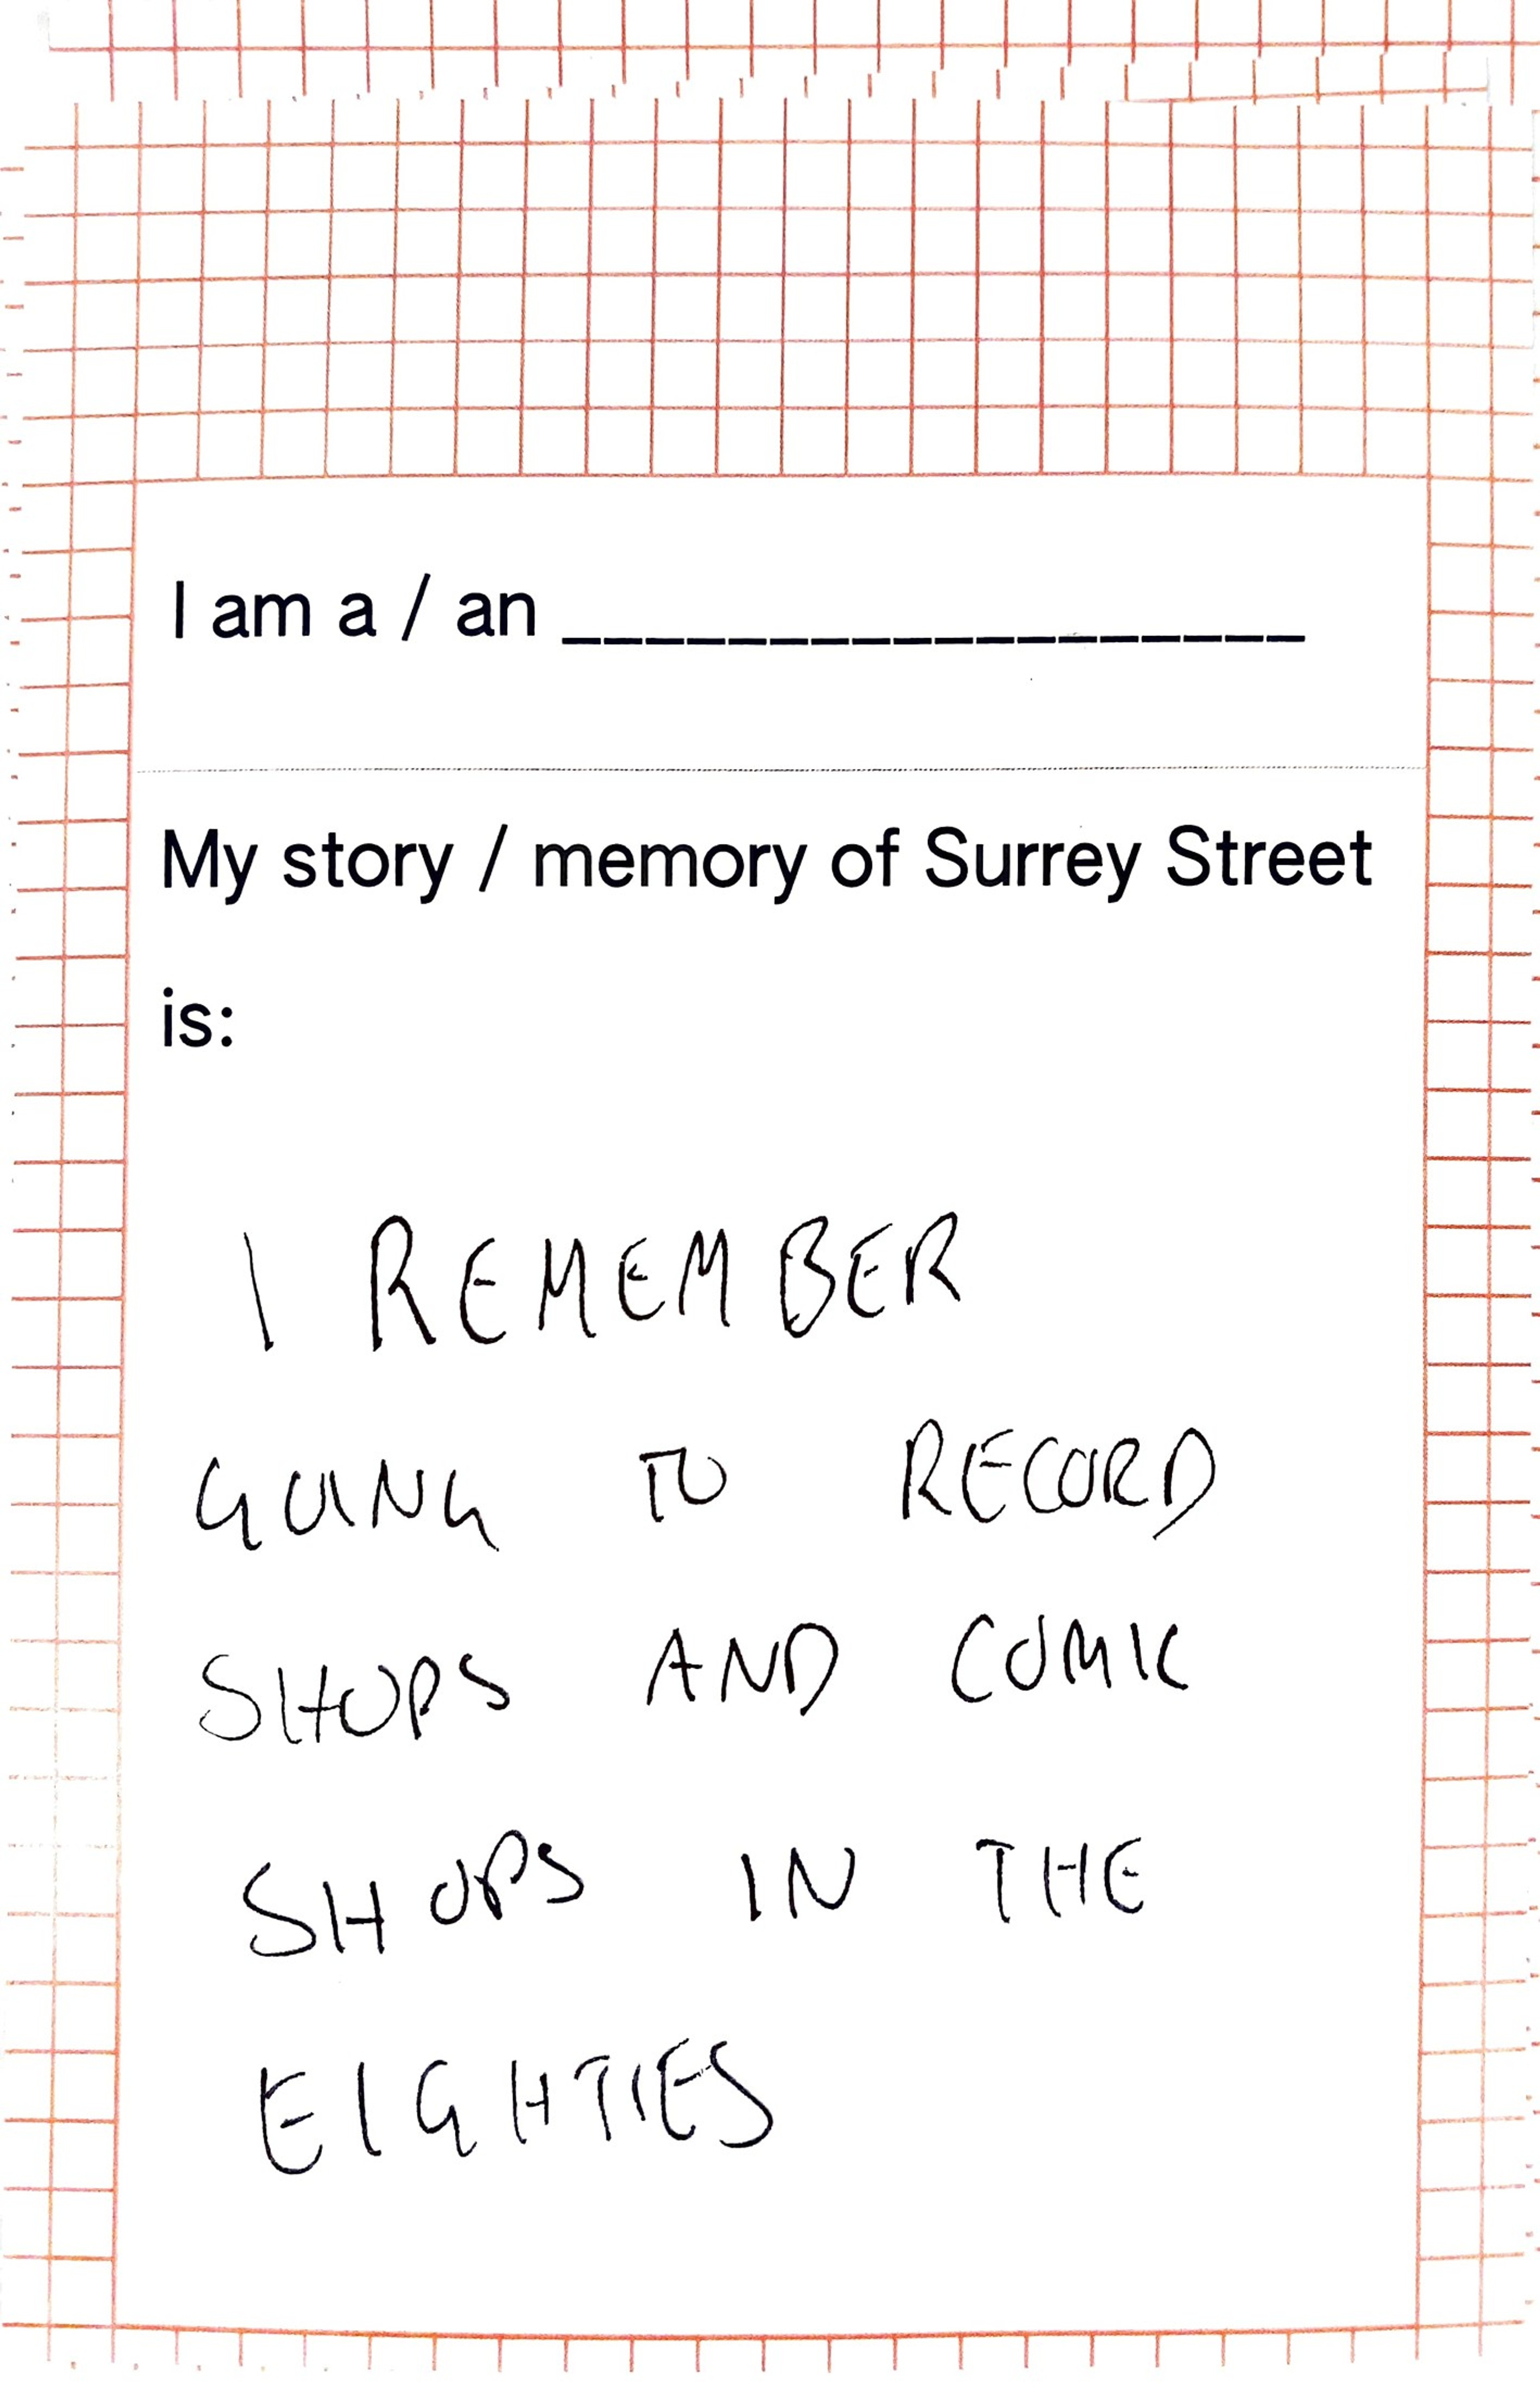 I am a / an __________________
My story / memory of Surrey Street
is:
I REMEMBER
GOING TO RECORD
SHOPS AND COMIC
SHOPS IN THE
EIGHTIES